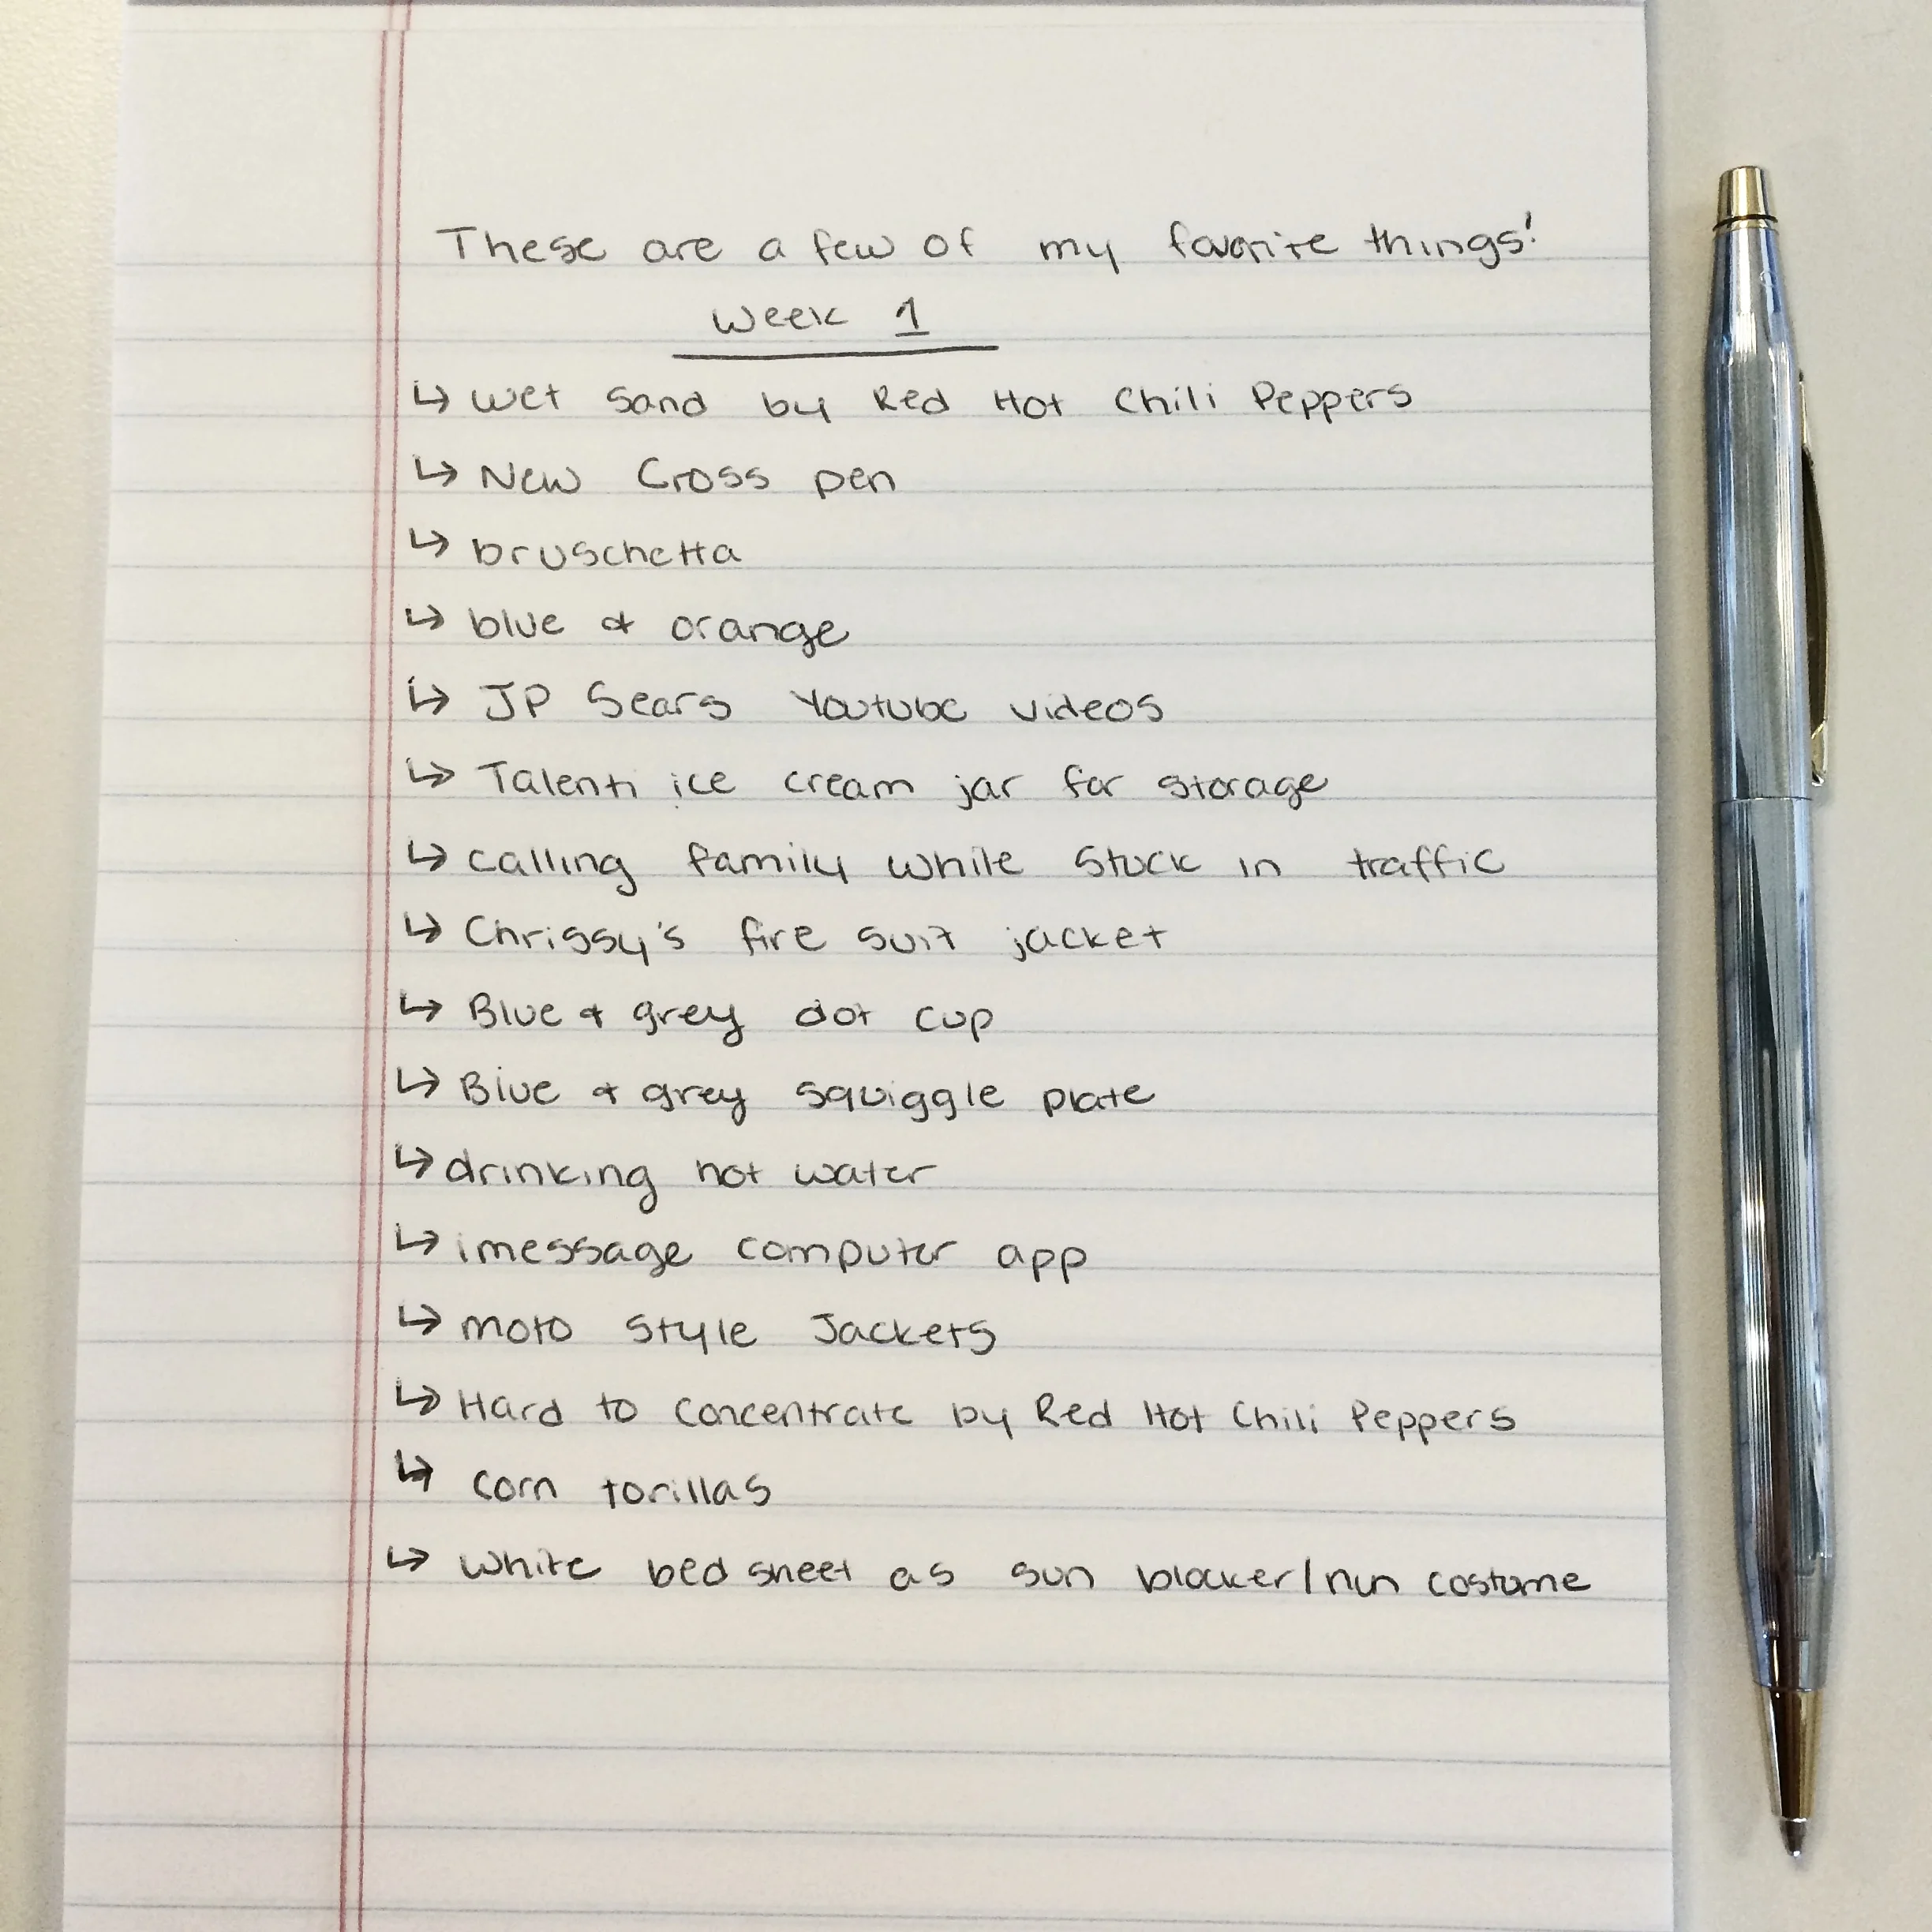 These are a few of my favorite things!
Week 1
↳ Wet Sand by Red Hot Chili Peppers
↳ New Cross pen
↳ bruschetta
↳ blue & orange
↳ JP Sears Youtube videos
↳ Talenti ice cream jar for storage
↳ calling family while stuck in traffic
↳ Chrissy's fire suit jacket
↳ Blue & grey dot cup
↳ Blue & grey squiggle plate
↳ drinking hot water
↳ imessage computer app
↳ moto style Jackets
↳ Hard to Concentrate by Red Hot Chili Peppers
↳ corn torillas
↳ White bed sheet as sun blocker/nun costume